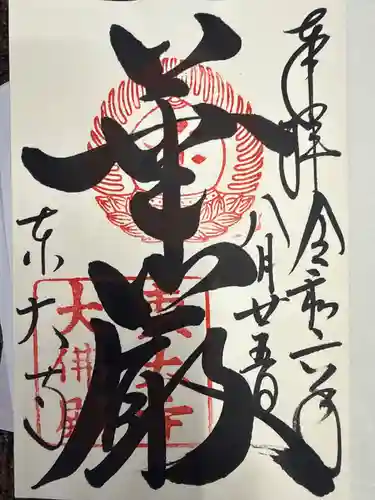 奉拝 令和六年
八月廿五日
華厳
東大寺
東大寺
大佛殿